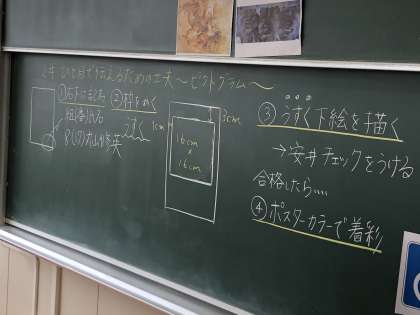 2年 ひと目で伝えるための工夫 ～ピクトグラム～
① 右下に記名
②枠をかく
うすく
3cm
1cm
16cm
×
16cm
③ うすく下絵を描く
→安井チェックをうける
合格したら....
④ ポスターカラーで着彩